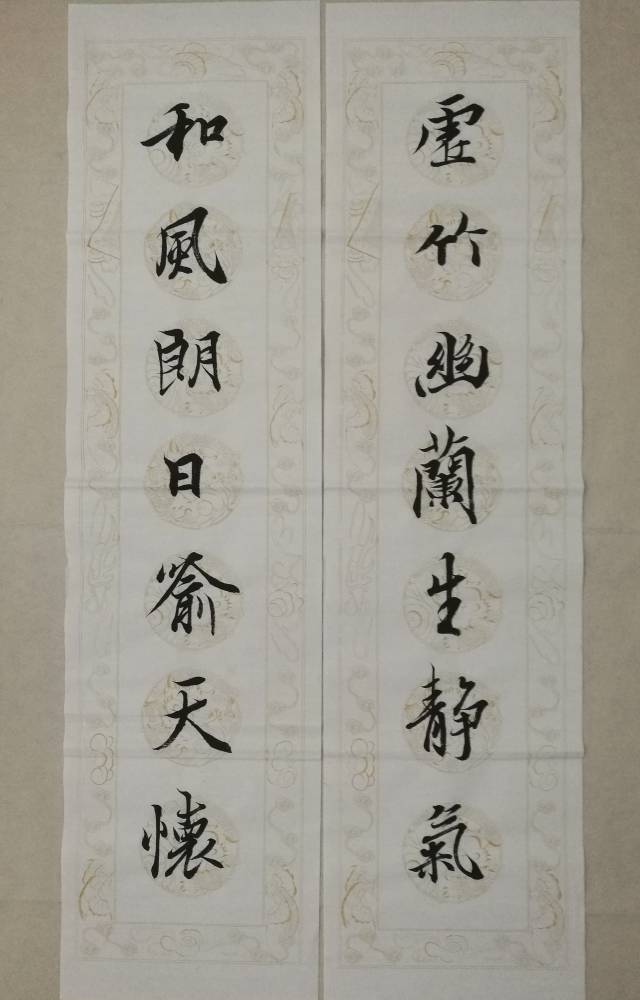 虚竹幽蘭生静氣
和風朗日喻天懷